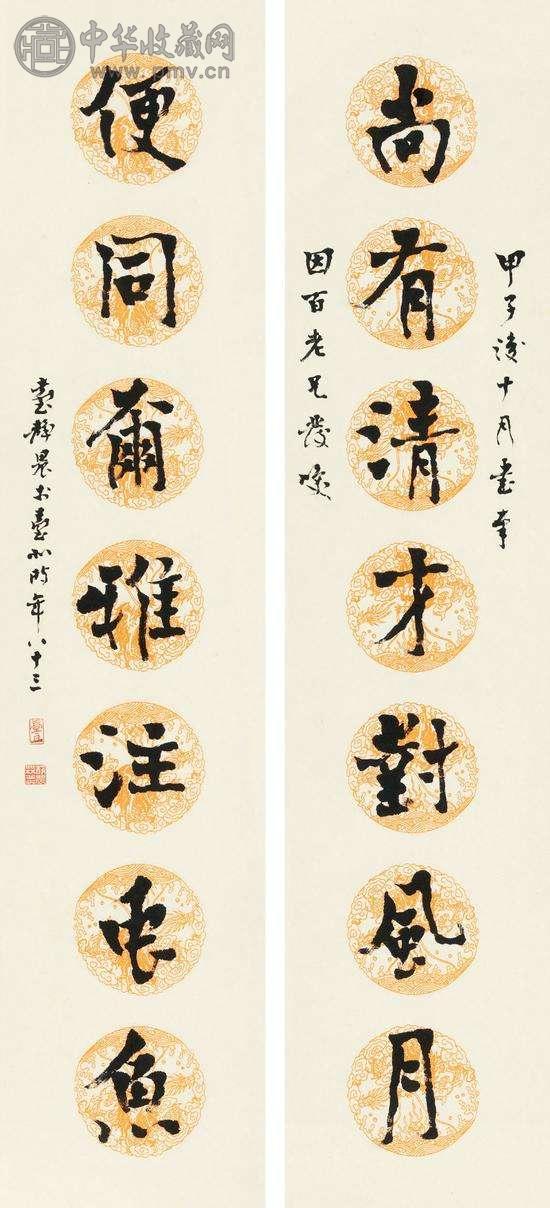 中华收藏网
www.pmv.cn
甲子後十月書奉
尚有清才對風月
因百老兄發咲
便同爾雅注虫魚
臺靜農於臺北時年八十三